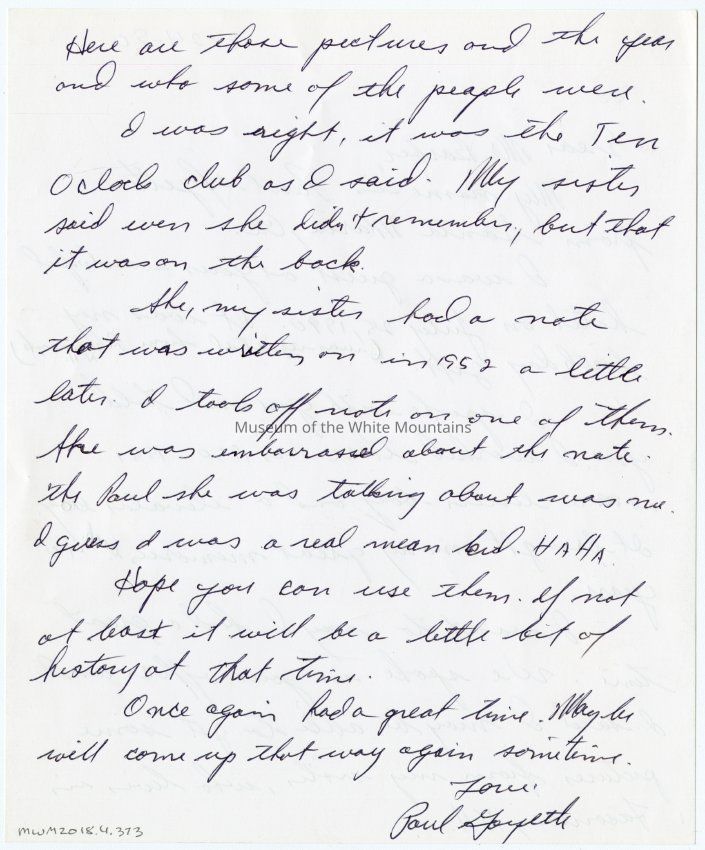 Here are those pictures and the year
and who some of the people were.
I was right, it was the Ten
O clock club as I said. My sister
said wen she didn't remember, but that
it was on the back.
She, my sister had a note
that was written on in 1952 a little
later. I took off note on one of them.
She was embarrassed about the note.
the Paul she was talking about was me.
I guess I was a real mean kid. HAHA.
Hope you can use them. If not
at least it will be a little bit of
history at that time.
Once again had a great time. Maybe
will come up that way again sometime.
Love.
Paul
Museum of the White Mountains
MWM2018.4.373